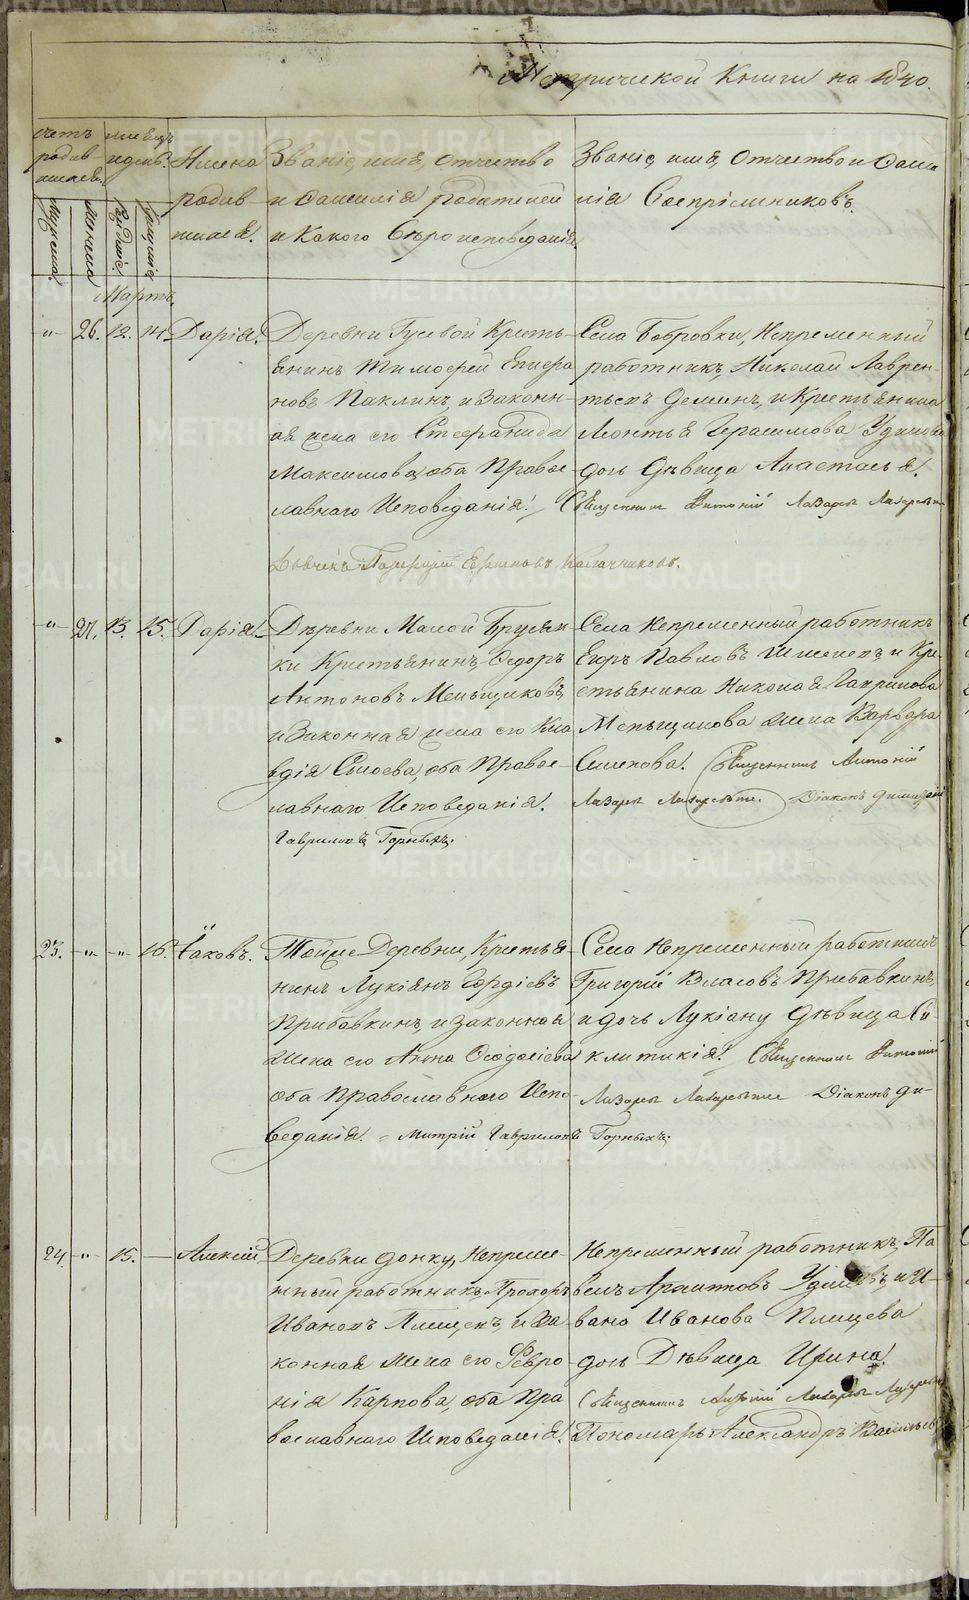 Метрической Книги на 1840.
счетъ родившихся.
мужеска.
женска
месяцъ и день.
рожденіе
крещеніе
Имена родившихся.
Званіе, имя, отчество
и фамилія родителей
и какого вѣроисповеданія
Званіе, имя, отчество и фами-
лія Воспріемниковъ.
Мартъ.
" 26. 12. 14. Дарія.
Деревни Гусевой Кресть-
янинъ Тимофей Епифа
новъ Паклинъ, и Законн-
ая жена его Стефанида
Максимова, оба Правос-
лавнаго Исповѣданія.
Села Бобровки, Непременный
работникъ, Николай Лаврен-
тьевъ Деминъ, и Крестьянина
Леонтья Герасимова Удинцова
дочь Дѣвица Анастасья.
Священникъ Антоній Лазаревъ
Калачниковъ.
" 27. 13. 15. Дарія.
Деревни Малой Брусян-
ки Крестьянинъ Ѳедоръ
Антоновъ Меньщиковъ,
и Законная жена его Кла
вдія Сысоева, оба Правос-
лавнаго Исповеданія.
Села Непременный работникъ
Егоръ Павловъ и Кре
стьянина Николая Гаврилова
Меньщикова жена Варвара
Семенова. Священникъ Антоній
Лазаревъ Діаконъ Димитрій
Гавриловъ Горныхъ.
23. " " 16. Іаковъ.
Тойже Деревни, Крестья
нинъ Лукіянъ Гордіевъ
Прибавкинъ, и законная
жена его Анна Ѳеодосіева
оба Православнаго Испо-
веданія.
Села Непременный работникъ
Григорій Власовъ Прибавкинъ,
и дочь Лукіану Дѣвица Си-
клитикія. Священникъ Антоній
Лазаревъ Діаконъ Ди-
митрій Гавриловъ Горныхъ.
24 " 15. — Алексій
Деревни Донку, Непреме-
нный работникъ, Прохоръ
Ивановъ Плищевъ, и За
конная жена его Февро
нія Карпова, оба Пра
вославнаго Исповеданія.
Непременный работникъ, Па
велъ Архиповъ Удинцовъ, и И-
вана Иванова Плищева
дочь Дѣвица Ирина.
Священникъ Антоній Лазаревъ
Пономарь Александръ Васильевъ
METRIKI.GASO-URAL.RU